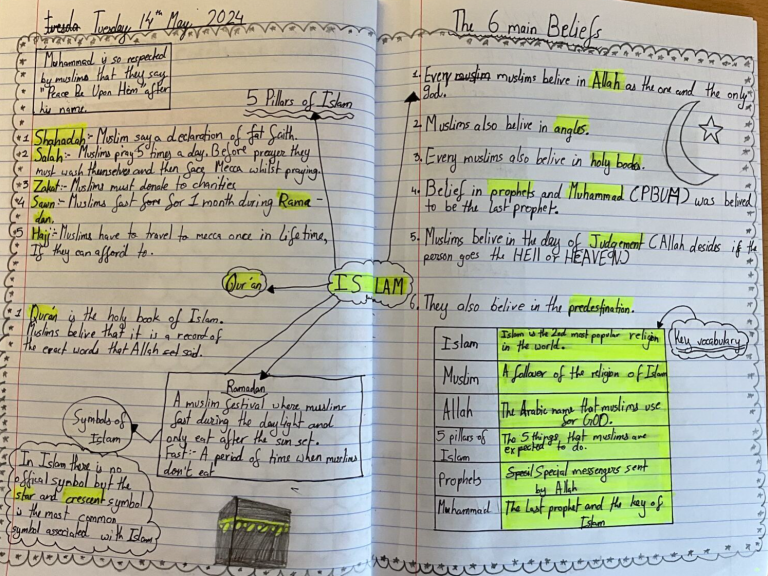 Tuesday 14th May, 2024
Muhammad is so respected
by muslims that they say
"Peace Be Upon Him" after
his name.
5 Pillars of Islam
1 Shahadah:- Muslim say a declaration of fat faith.
2 Salah:- Muslims pray 5 times a day. Before prayer they
must wash themselves and then face Mecca whilst praying.
3 Zakat:- Muslims must donate to charities
4 Sawn:- Muslims fast for for 1 month during Rama-
dan.
5 Hajj:- Muslims have to travel to mecca once in lifetime,
If they can afford to.
Qur'an
IS LAM
1 Qurán is the holy book of Islam.
Muslims belive that it is a record of
the exact words that Allah said.
Ramadan
A muslim festival where muslims
fast during the daylight and
only eat after the sun set.
Fast:- A period of time when muslims
don't eat
Symbols of
Islam
In Islam there is no
offical symbol but the
star and crescent symbol
is the most common
symbol associated with Islam
The 6 main Beliefs
1. Every muslims belive in Allah as the one and the only
god.
2. Muslims also belive in angles.
3. Every muslims also belive in holy books.
4. Belief in prophets and Muhammad (PBUM) was belived
to be the last prophet.
5. Muslims belive in the day of Judgement (Allah desides if the
person goes the HELL or HEAVEN)
6. They also belive in the predestination.
Key vocabulary
Islam Islam is the 2nd most popular religion
in the world.
Muslim A follower of the religion of Islam
Allah The Arabic name that muslims use
for GOD.
5 pillars of The 5 things, that muslims are
Islam expected to do.
Prophets Special Special messengers sent
by Allah
Muhammad The last prophet and the key of
Islam